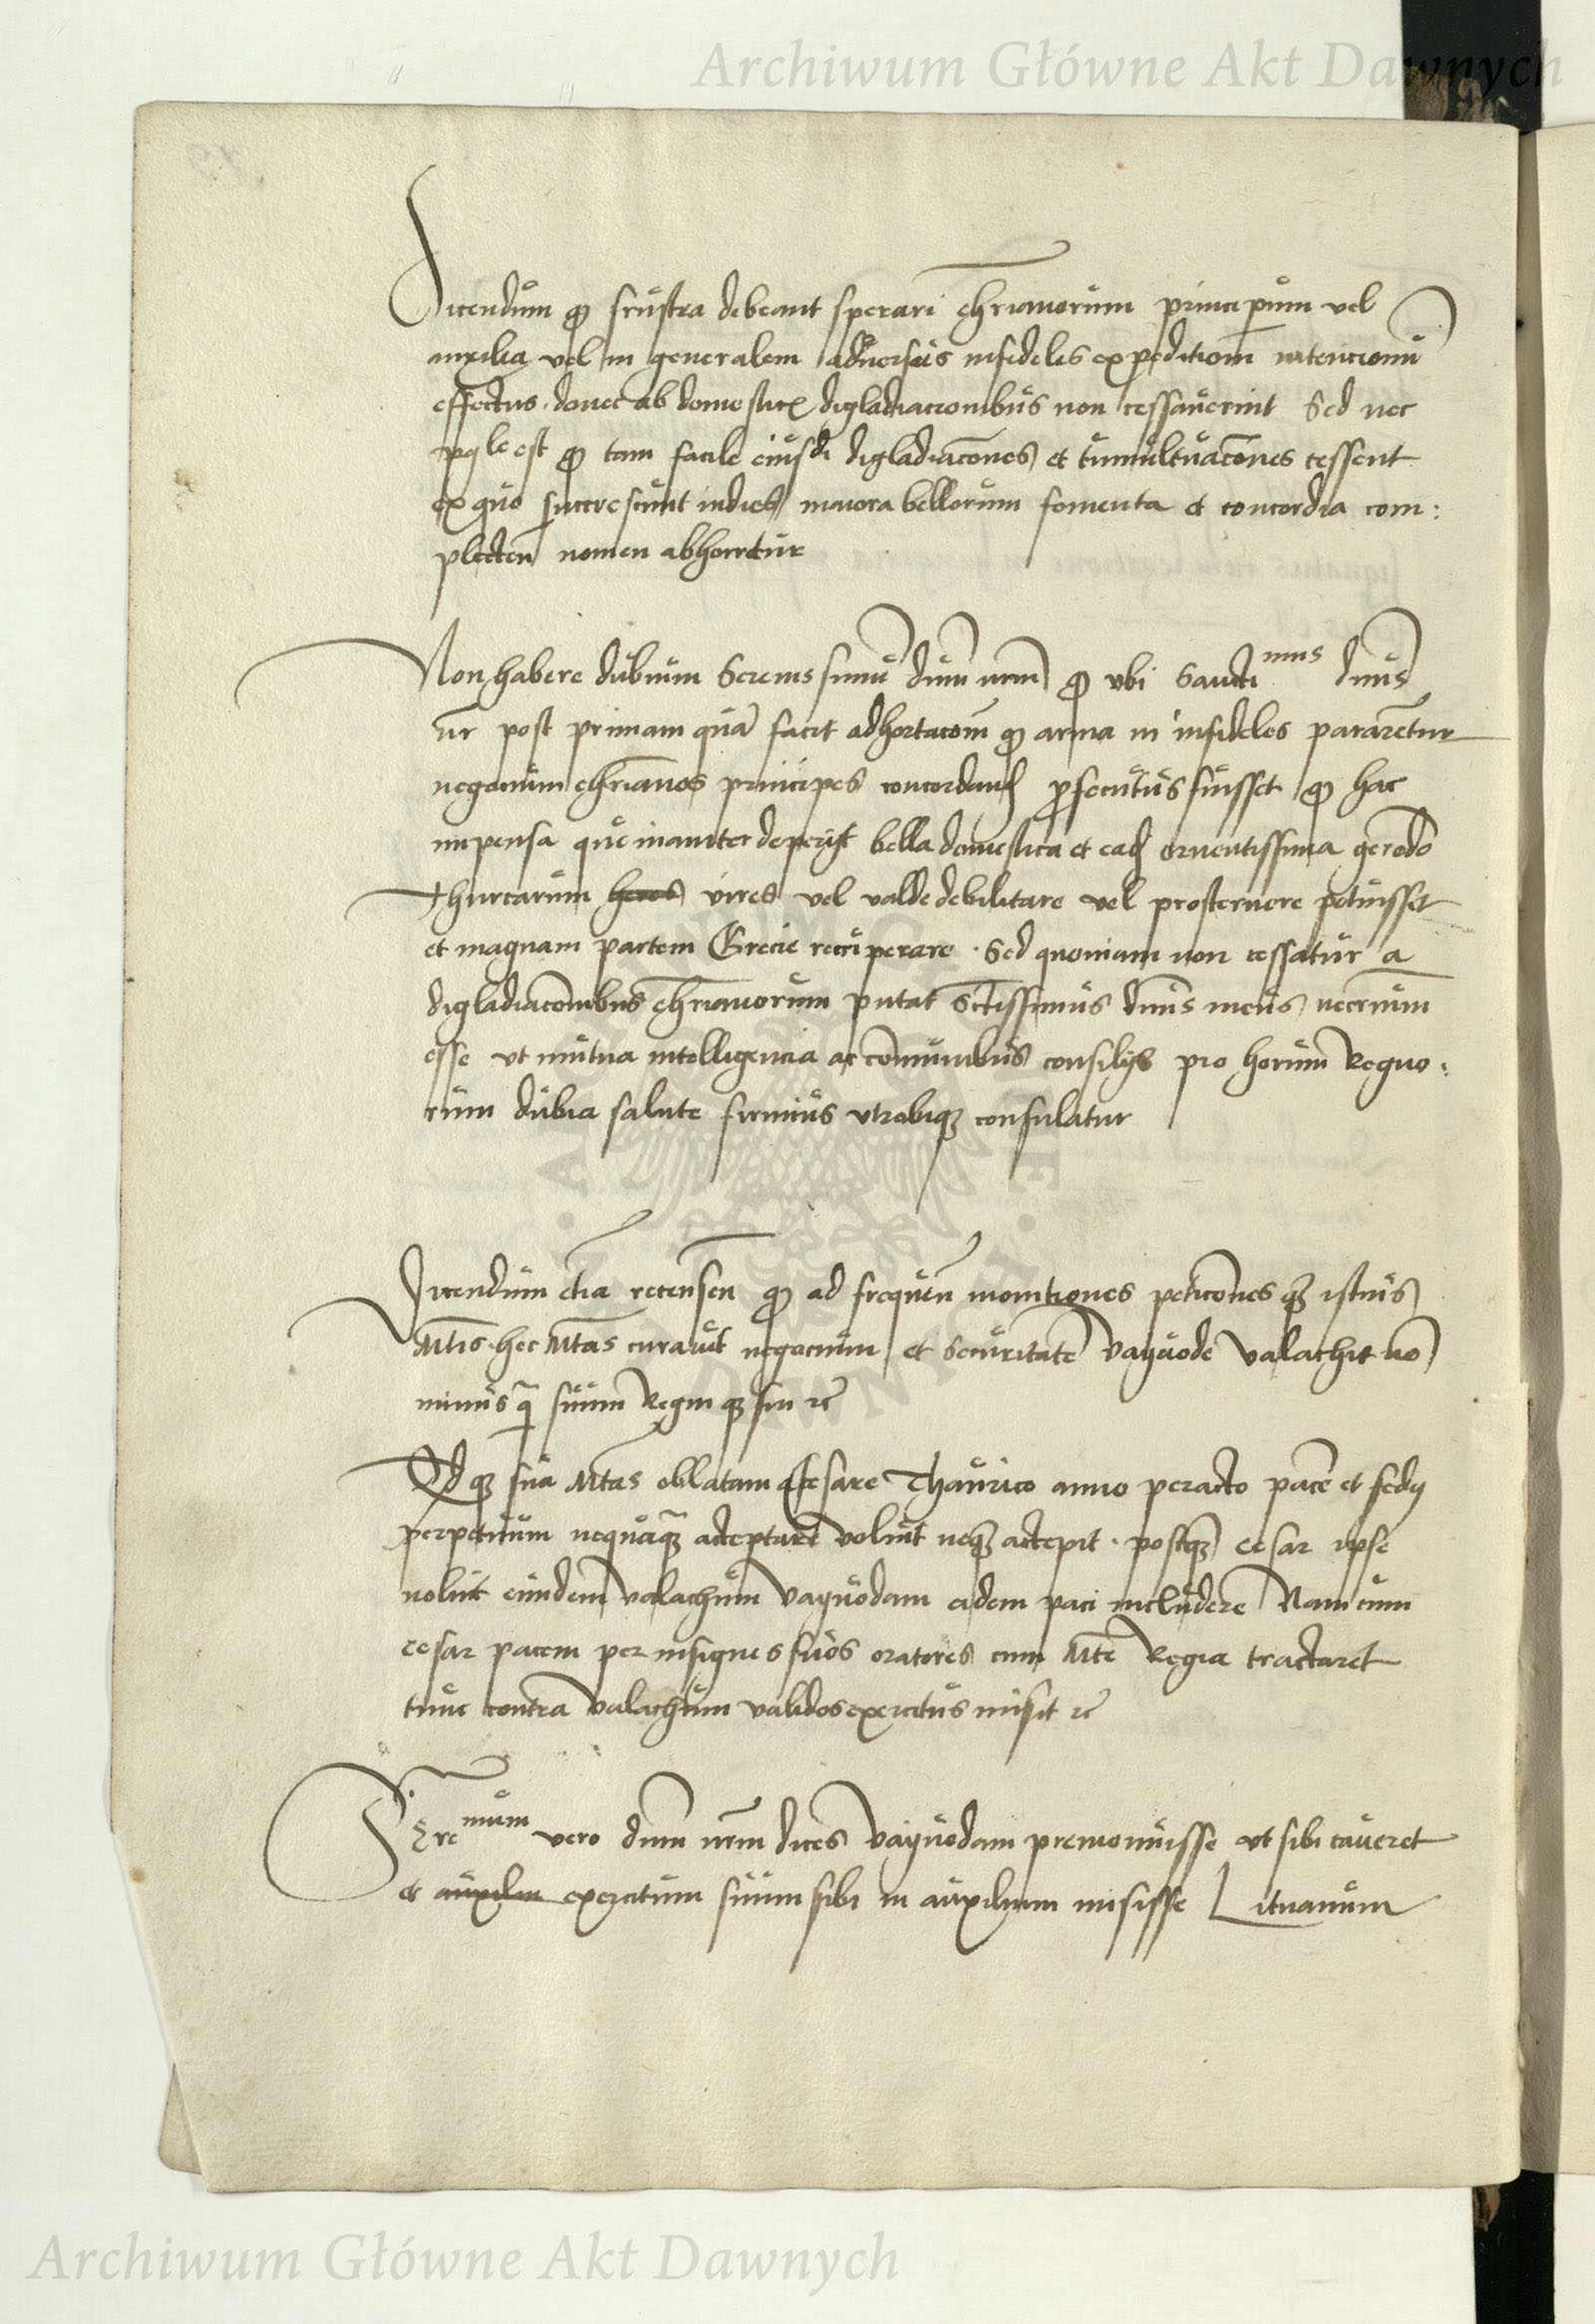 Archiwum Główne Akt Dawnych
Dicendum qͦ frustra debeant sperari chrianorum principum vel
auxilia vel in generalem adversus infideles expeditiom intencionũ
effectus donec ab domesticꝭ digladiacionibus non cessaverint Sed nec
spes est qͦ tam facile eiusdi digladiacões et tumultuacões cessent
ex quo succrescunt indies maiora bellorum fomenta et concordia com:
plecten̄ nomen abhorretur
Non habere dubium Serenissimũ dnum nrm qͦ vbi Sancti mus dnus
nr post primam quã facit adhortacom̄ qͦ arma in infideles pararẽtur
negocium chrianos principes concordand prosecutus fuisset qͦ hac
impensa que inaniter deperijt bella domestica et ead cruentissima gerẽdo
Thurcarum heros vires vel valde debilitare vel prosternere potuisset
et magnam partem Grecie recuperare . Sed quoniam non cessatur a
digladiacõnibus chrianorum putat Sctissimus dnus meus necrium
esse vt mutua intelligencia ac comunibus consilijs pro horum Regno:
rum dubia salute firmius vtrobiqꝫ consulatur
Dicendum etiã recensen̄ qͦ ad frequen̄ monitiones peticõnes qꝫ istius
Mtis hec Mtas curavit negocium et Securitatẽ Vayuode Valachie nõ
minus q̃ suum Regni qꝫ sui zc̃
Ad qꝫ sua Mtas oblatam a Cesare Thaurico anno peracto pacẽ et fedꝯ
perpetuum nequaqꝫ acceptare voluit neqꝫ accepit . postqꝫ cesar ipse
noluit eundem valachum Vayuodam eidem paci includere Nam cum
cesar pacem per insignes suos oratores cum Mte Regia tractaret
tunc contra valachum validos exercitus misit zc̃
Sere mum vero dnm nrm dices Vayuodam premonuisse vt sibi caveret
et auxilia exercitum suum sibi in auxilium misisse Lituanum
Archiwum Główne Akt Dawnych